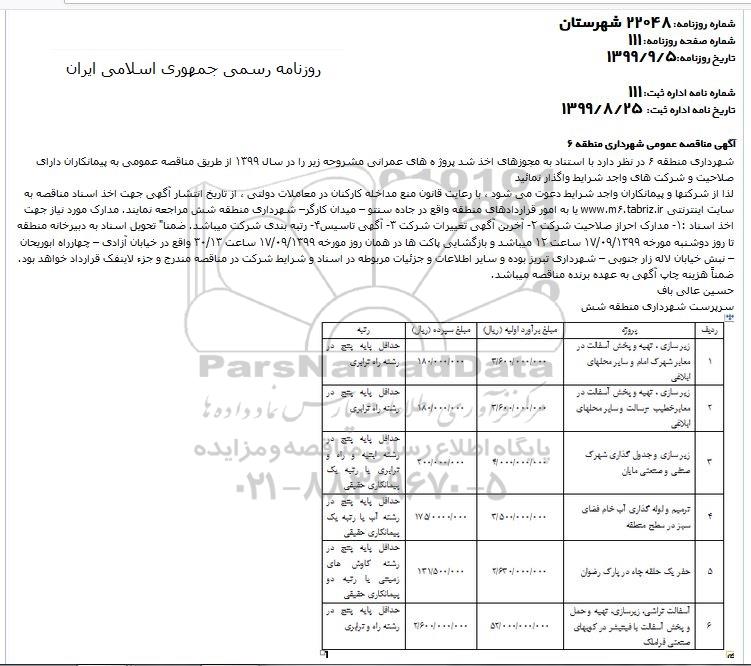 شماره روزنامه: ۲۲۰۴۸ شهرستان
شماره صفحه روزنامه: ۱۱۱
تاریخ روزنامه: ۱۳۹۹/۹/۵
روزنامه رسمی جمهوری اسلامی ایران
شماره نامه اداره ثبت: ۱۱۱
تاریخ نامه اداره ثبت: ۱۳۹۹/۸/۲۵
آگهی مناقصه عمومی شهرداری منطقه ۶
شهرداری منطقه ۶ در نظر دارد با استناد به مجوزهای اخذ شد پروژه های عمرانی مشروحه زیر را در سال ۱۳۹۹ از طریق مناقصه عمومی به پیمانکاران دارای
صلاحیت و شرکت های واجد شرایط واگذار نمائید
لذا از شرکتها و پیمانکاران واجد شرایط دعوت می شود ، با رعایت قانون منع مداخله کارکنان در معاملات دولتی ، از تاریخ انتشار آگهی جهت اخذ اسناد مناقصه به
سایت اینترنتی www.m6.tabriz.ir یا به امور قراردادهای منطقه واقع در جاده سنتو – میدان کارگر– شهرداری منطقه شش مراجعه نمایند. مدارک مورد نیاز جهت
اخذ اسناد :۱- مدارک احراز صلاحیت شرکت ۲- آخرین آگهی تغییرات شرکت ۳- آگهی تاسیس۴- رتبه بندی شرکت میباشد. ضمنا" تحویل اسناد به دبیرخانه منطقه
تا روز دوشنبه مورخه ۱۷/۰۹/۱۳۹۹ ساعت ۱۲ میباشد و بازگشایی پاکت ها در همان روز مورخه ۱۷/۰۹/۱۳۹۹ ساعت ۳۰/۱۳ واقع در خیابان آزادی – چهارراه ابوریحان
– نبش خیابان لاله زار جنوبی – شهرداری تبریز بوده و سایر اطلاعات و جزئیات مربوطه در اسناد و شرایط شرکت در مناقصه مندرج و جزء لاینفک قرارداد خواهد بود.
ضمناً هزینه چاپ آگهی به عهده برنده مناقصه میباشد.
حسین عالی باف
سرپرست شهرداری منطقه شش
ردیف پروژه مبلغ برآورد اولیه (ریال) مبلغ سپرده (ریال) رتبه
۱ زیرسازی ، تهیه و پخش آسفالت در معابر شهرک امام و سایر محلهای ابلاغی ۳/۶۰۰/۰۰۰/۰۰۰ ۱۸۰/۰۰۰/۰۰۰ حداقل پایه پنج در رشته راه ترابری
۲ زیرسازی ، تهیه و پخش آسفالت در معابر خطیب -رسالت و سایر محلهای ابلاغی ۳/۶۰۰/۰۰۰/۰۰۰ ۱۸۰/۰۰۰/۰۰۰ حداقل پایه پنج در رشته راه ترابری
۳ زیرسازی و جدول گذاری شهرک صنفی و صنعتی مایان ۴/۰۰۰/۰۰۰/۰۰۰ ۲۰۰/۰۰۰/۰۰۰ حداقل پایه پنج در رشته ابنیه و راه و ترابری یا رتبه یک پیمانکاری حقیقی
۴ ترمیم و لوله گذاری آب خام فضای سبز در سطح منطقه ۳/۵۰۰/۰۰۰/۰۰۰ ۱۷۵/۰۰۰۰/۰۰۰ حداقل پایه پنج در رشته آب یا رتبه یک پیمانکاری حقیقی
۵ حفر یک حلقه چاه در پارک رضوان ۲/۶۳۰/۰۰۰/۰۰۰ ۱۳۱/۵۰۰/۰۰۰ حداقل پایه پنج در رشته کاوش های زمینی یا رتبه دو پیمانکاری حقیقی
۶ آسفالت تراشی، زیرسازی، تهیه و حمل و پخش آسفالت با فینیشر در کویهای صنعتی قراملک ۵۲/۰۰۰/۰۰۰/۰۰۰ ۲/۶۰۰/۰۰۰/۰۰۰ حداقل پایه پنج در رشته راه و ترابری
ParsNamadData
مرکز فرآوری اطلاعات پارس نماد داده ها
پایگاه اطلاع رسانی مناقصه و مزایده
۰۲۱-۸۸۳۴۹۶۷۰-۵